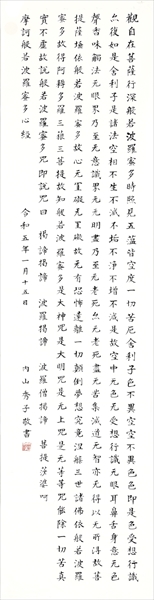 觀自在菩薩行深般若波羅蜜多時照見五蘊皆空度一切苦厄舍利子色不異空空不異色色即是空空即是色受想行識
亦復如是舍利子是諸法空相不生不滅不垢不淨不增不減是故空中无色无受想行識无眼耳鼻舌身意无色
聲香味觸法无眼界乃至无意識界无无明亦无无明盡乃至无老死亦无老死盡无苦集滅道无智亦无得以无所得故菩
提薩埵依般若波羅蜜多故心无罣礙无罣礙故无有恐怖遠離一切顛倒夢想究竟涅槃三世諸佛依般若波羅
蜜多故得阿耨多羅三藐三菩提故知般若波羅蜜多是大神咒是大明咒是无上咒是无等等咒能除一切苦真
實不虛故說般若波羅蜜多咒即說咒曰 揭諦揭諦 波羅揭諦 波羅僧揭諦 菩提薩婆訶
摩訶般若波羅蜜多心經 令和五年一月十五日 内山 子敬書